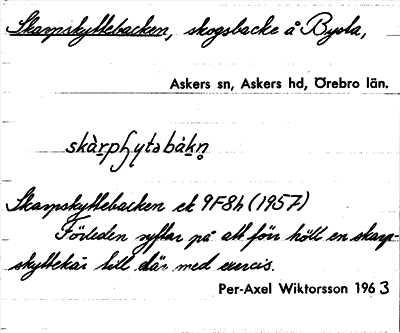 Skarpskyttebacken, skogsbacke å Bysta,
Askers sn, Askers hd, Örebro län.
skàrpʃytəbákn̥
Skarpskyttebacken ek 9F8h (1957)
Förleden syftar på att förr höll en skarp-
skyttekår till där med exercis.
Per-Axel Wiktorsson 1963